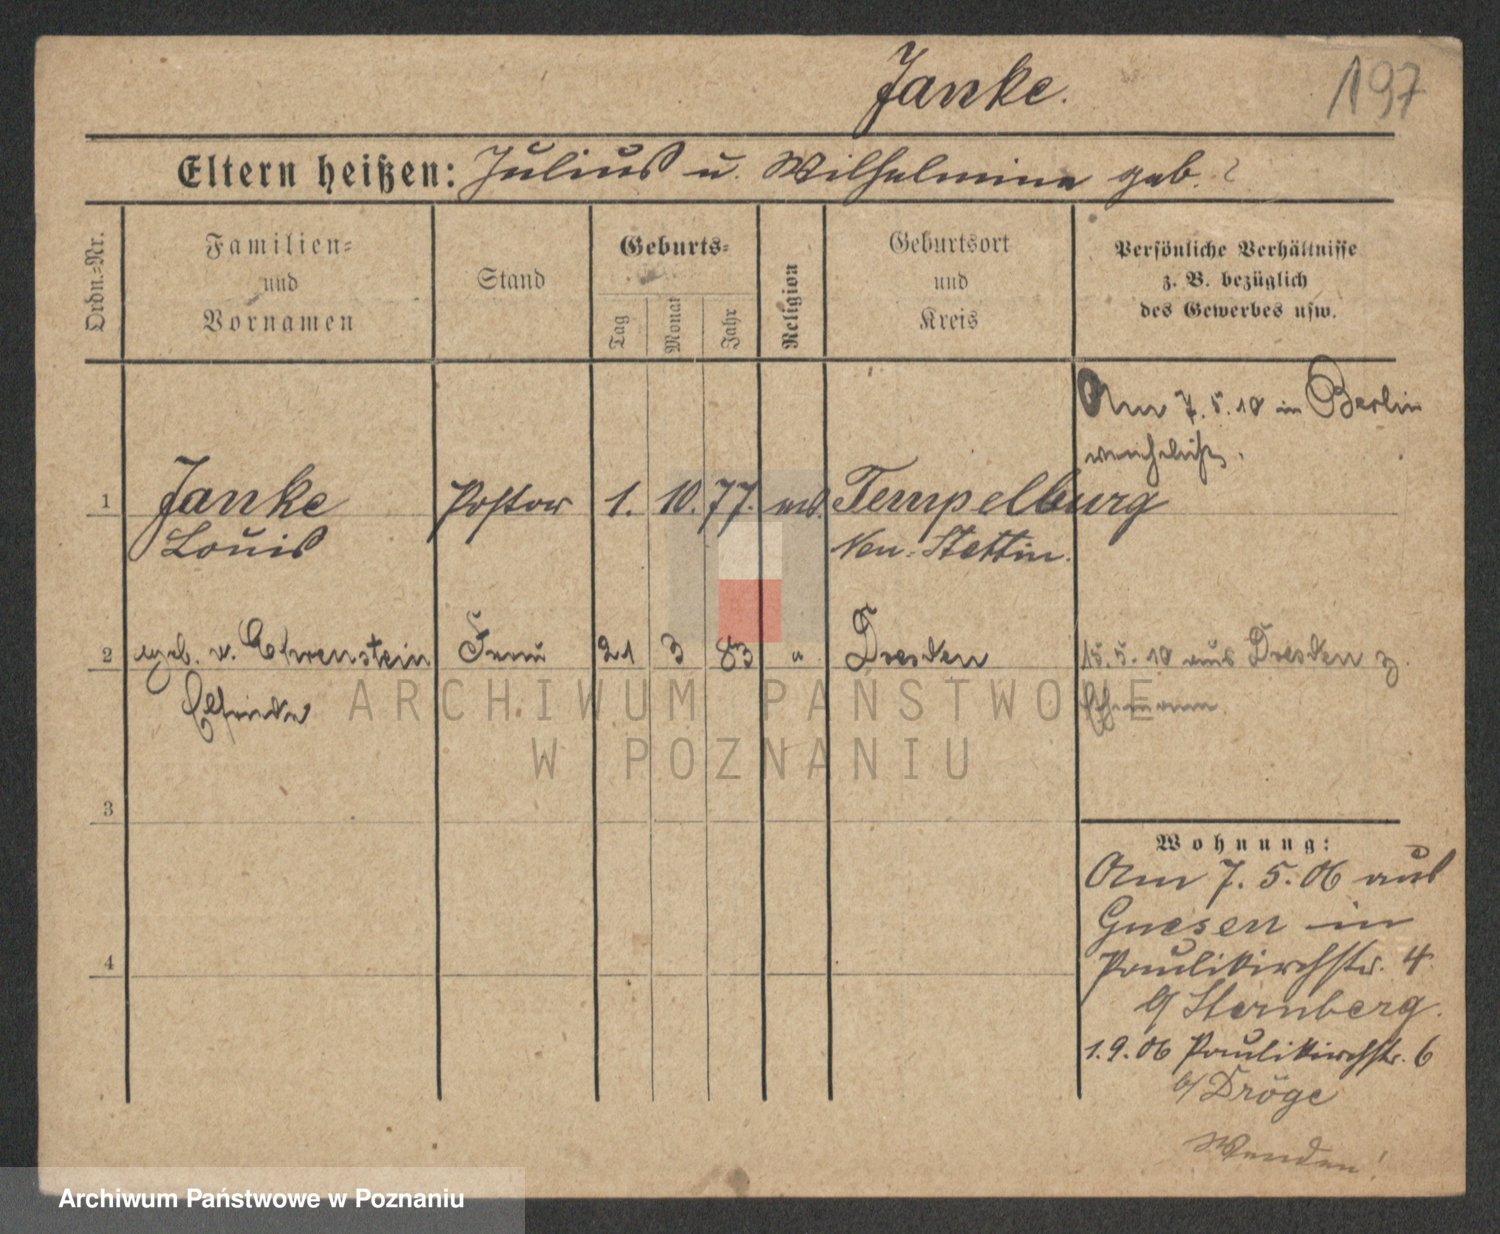 Janke.
197
Eltern heißen: Julius u. Wilhelmine geb. ?
Ordn.=Nr.
Familien=
und
Vornamen
Stand
Geburts=
Tag
Monat
Jahr
Religion
Geburtsort
und
Kreis
Persönliche Verhältnisse
z. B. bezüglich
des Gewerbes usw.
Am 7. 5. 10 in Berlin
verehelicht.
1 Janke Pastor 1. 10. 77. Tempelburg
Louis Neu-Stettin.
2 geb. v. Ehrenstein Frau 21 3 83 " Dresden 15. 5. 10 aus Dresden z.
Elfriede Ehemann
ARCHIWUM PAŃSTWOWE
W POZNANIU
3
4
Wohnung:
Am 7. 5. 06 aus
Gnesen in
Paulikirchstr. 4
b/ Sternberg.
1. 9. 06 Paulikirchstr. 6
b/ Dröge
Wenden!
Archiwum Państwowe w Poznaniu